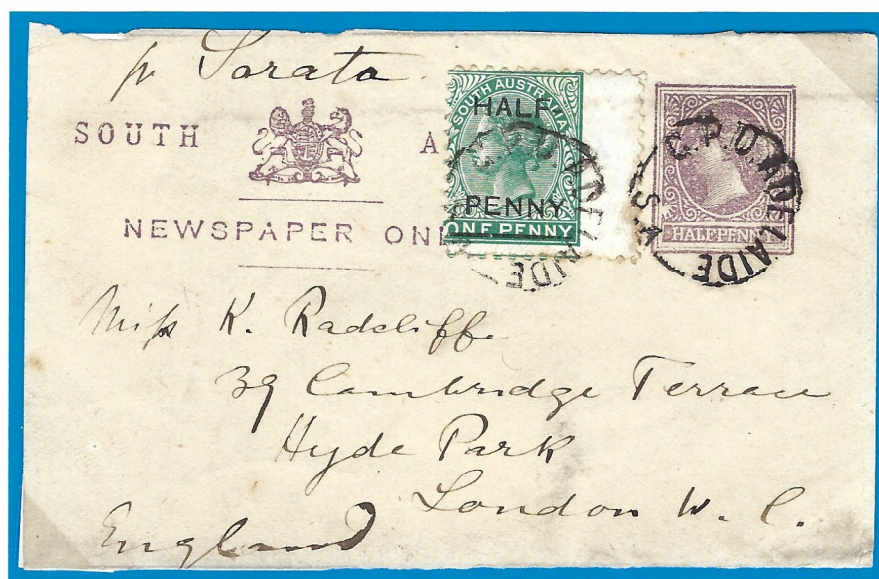 pr Sorata
SOUTH A
NEWSPAPER ONL
SOUTH AUSTRALIA
HALF
PENNY
ONE PENNY
G.P.O. ADELAIDE
G.P.O. ADELAIDE S.A
HALFPENNY
Miss K. Radcliffe
39 Cambridge Terrace
Hyde Park
London W. C.
England